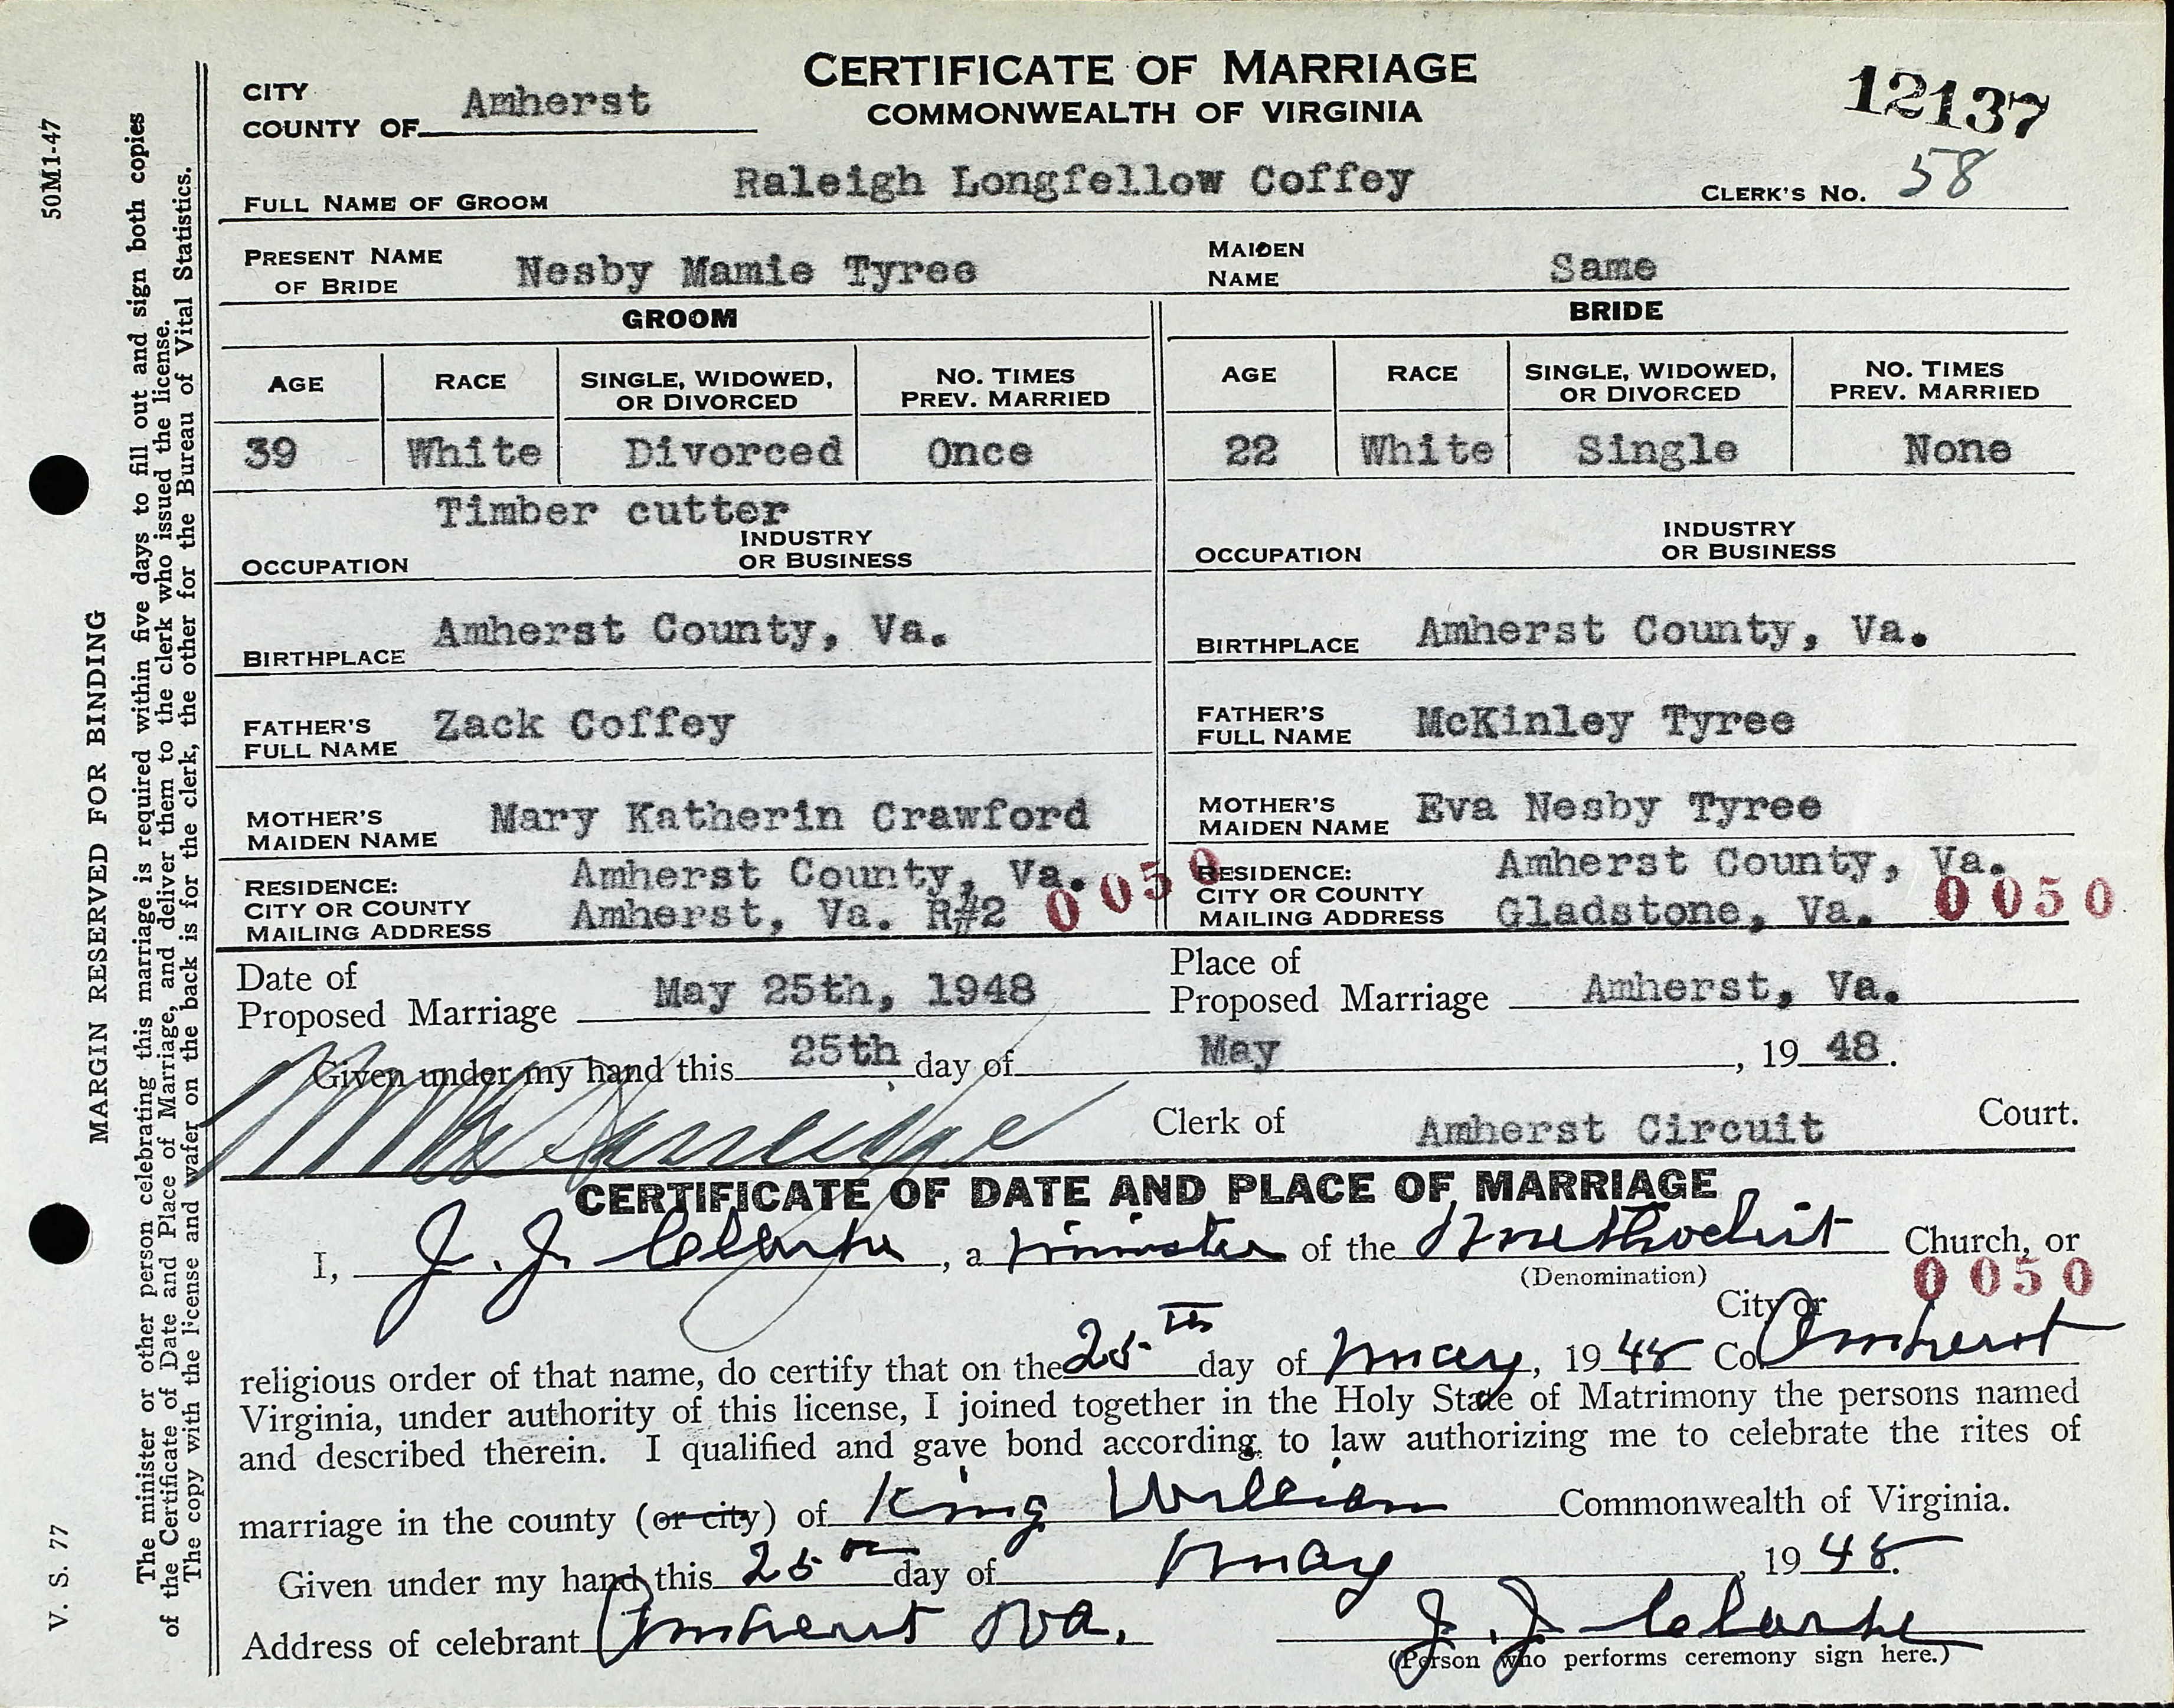 CERTIFICATE OF MARRIAGE
COMMONWEALTH OF VIRGINIA
12137
CITY
COUNTY OF Amherst
FULL NAME OF GROOM Raleigh Longfellow Coffey CLERK'S NO. 58
PRESENT NAME OF BRIDE Nesby Mamie Tyree MAIDEN NAME Same
GROOM BRIDE
AGE RACE SINGLE, WIDOWED, OR DIVORCED NO. TIMES PREV. MARRIED AGE RACE SINGLE, WIDOWED, OR DIVORCED NO. TIMES PREV. MARRIED
39 White Divorced Once 22 White Single None
Timber cutter
OCCUPATION INDUSTRY OR BUSINESS OCCUPATION INDUSTRY OR BUSINESS
BIRTHPLACE Amherst County, Va. BIRTHPLACE Amherst County, Va.
FATHER'S FULL NAME Zack Coffey FATHER'S FULL NAME McKinley Tyree
MOTHER'S MAIDEN NAME Mary Katherin Crawford MOTHER'S MAIDEN NAME Eva Nesby Tyree
RESIDENCE: Amherst County, Va. RESIDENCE: Amherst County, Va.
CITY OR COUNTY 0050 CITY OR COUNTY 0050
MAILING ADDRESS Amherst, Va. R#2 MAILING ADDRESS Gladstone, Va.
Date of Proposed Marriage May 25th, 1948 Place of Proposed Marriage Amherst, Va.
Given under my hand this 25th day of May, 1948.
Clerk of Amherst Circuit Court.
CERTIFICATE OF DATE AND PLACE OF MARRIAGE
I, J. J. Clarke, a minister of the Methodist Church, or
(Denomination) 0050
City or
religious order of that name, do certify that on the 25th day of May, 1948 Co. Amherst
Virginia, under authority of this license, I joined together in the Holy State of Matrimony the persons named
and described therein. I qualified and gave bond according to law authorizing me to celebrate the rites of
marriage in the county (or city) of King William Commonwealth of Virginia.
Given under my hand this 25th day of May, 1948.
Address of celebrant Amherst Va. J. J. Clarke
(Person who performs ceremony sign here.)
50M1-47
MARGIN RESERVED FOR BINDING
V. S. 77
The minister or other person celebrating this marriage is required within five days to fill out and sign both copies
of the Certificate of Date and Place of Marriage, and deliver them to the clerk who issued the license.
The copy with the license and wafer on the back is for the clerk, the other for the Bureau of Vital Statistics.